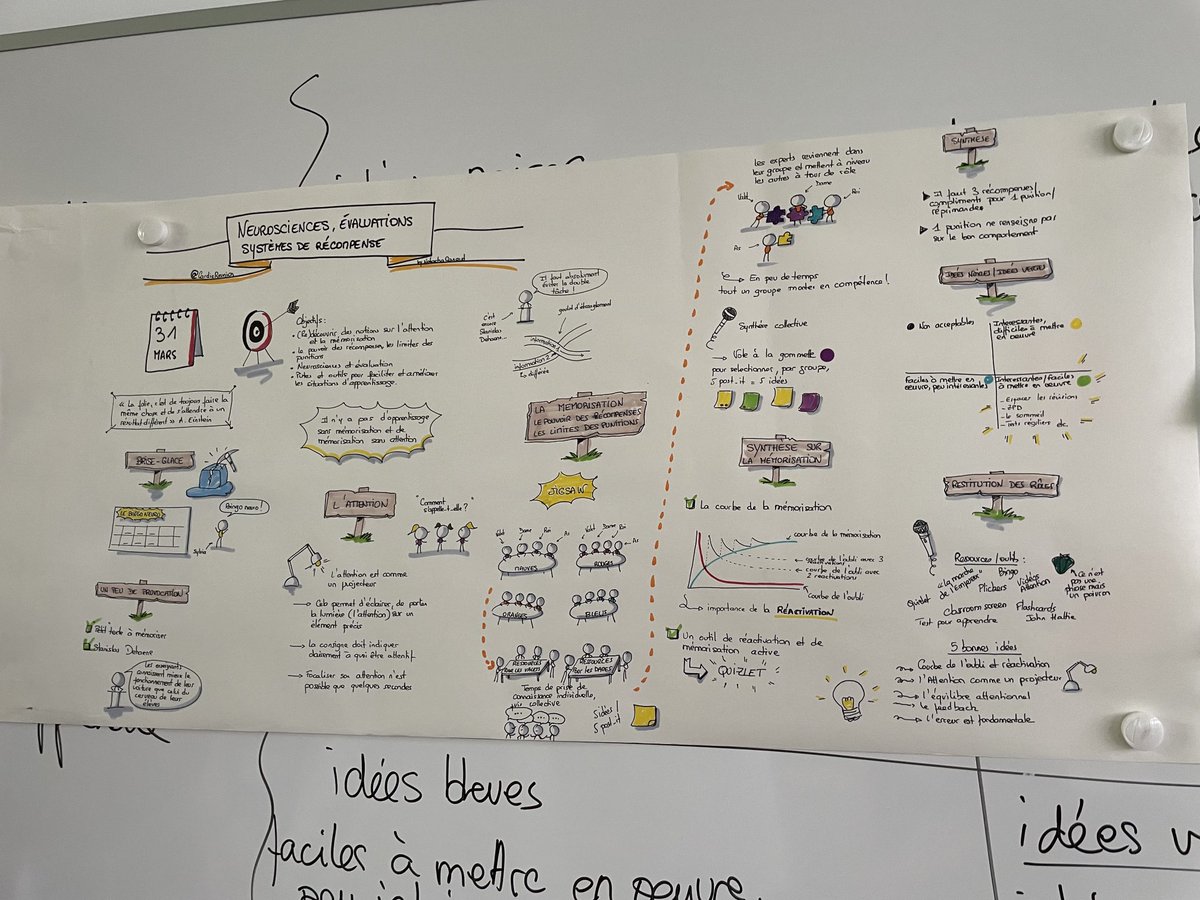 Neurosciences, évaluations
systèmes de récompense
31
MARS
Objectifs :
• (Re)découvrir des notions sur l'attention
et la mémorisation
• le pouvoir des récompenses, les limites des
punitions
• Neurosciences et évaluation
• Pistes et outils pour faciliter et améliorer
les situations d'apprentissage.
« La folie, c'est de toujours faire la
même chose et de s'attendre à un
résultat différent » A. Einstein
BRISE-GLACE
LE BINGO NEURO
Bingo neuro !
Sylvia
UN PEU DE PROVOCATION
Petit texte à mémoriser
Stanislas Dehaene
Les enseignants
connaissent mieux le
fonctionnement de leur
voiture que celui du
cerveau de leurs
élèves
Il n'y a pas d'apprentissage
sans mémorisation et de
mémorisation sans attention
L'ATTENTION
"Comment
s'appelle-t-elle ?"
L'attention est comme
un projecteur
Cela permet d'éclairer, de porter
la lumière (l'attention) sur un
élément précis
La consigne doit indiquer
clairement à quoi être attentif
Focaliser son attention n'est
possible que quelques secondes
Il faut absolument
éviter la double
tâche !
c'est
encore
Stanislas
Dehaene...
goulot d'étranglement
information 1
information 2
différée
LA MÉMORISATION
LE POUVOIR DES RÉCOMPENSES
LES LIMITES DES PUNITIONS
JIGSAW
Valet Dame Roi As
Valet Dame Roi As
MAUVES
ROUGES
ORANGES
BLEUS
RESSOURCES
POUR LES VALETS
RESSOURCES
POUR LES DAMES
Temps de prise de
connaissance individuelle,
puis collective
5 idées /
5 post-it
Les experts reviennent dans
leur groupe et mettent à niveau
les autres à tour de rôle
Valet
Dame
Roi
As
En peu de temps
tout un groupe monte en compétence !
Synthèse collective
Vote à la gommette
pour sélectionner, par groupe,
5 post-it = 5 idées
SYNTHÈSE SUR
LA MÉMORISATION
La courbe de la mémorisation
courbe de la mémorisation
courbe de l'oubli avec 3
réactivations
courbe de l'oubli avec
2 réactivations
Courbe de l'oubli
importance de la RÉACTIVATION
Un outil de réactivation et de
mémorisation active
QUIZLET
SYNTHÈSE
Il faut 3 récompenses/
compliments pour 1 punition/
réprimande
1 punition ne renseigne pas
sur le bon comportement
IDÉES NOIRES/IDÉES VERTES
Non acceptables
Intéressantes,
difficiles à mettre
en oeuvre
Faciles à mettre en
oeuvre, peu intéressantes
Intéressantes/Faciles
à mettre en oeuvre
- Espacer les révisions
- ZPD
- le sommeil
- Tests réguliers etc.
RESTITUTION DES RÔLES
Ressources/outils :
Quizlet
"La marche
de l'Empereur"
Bingo
Plickers
Vidéos
Attention
Classroom screen
Flashcards
Test pour apprendre
John Hattie
"Ce n'est
pas une
phrase mais
un poivron
5 bonnes idées
Courbe de l'oubli et réactivation
L'Attention comme un projecteur
L'équilibre attentionnel
Le feedback
L'erreur est fondamentale
idées bleues
faciles à mettre en oeuvre,
idées